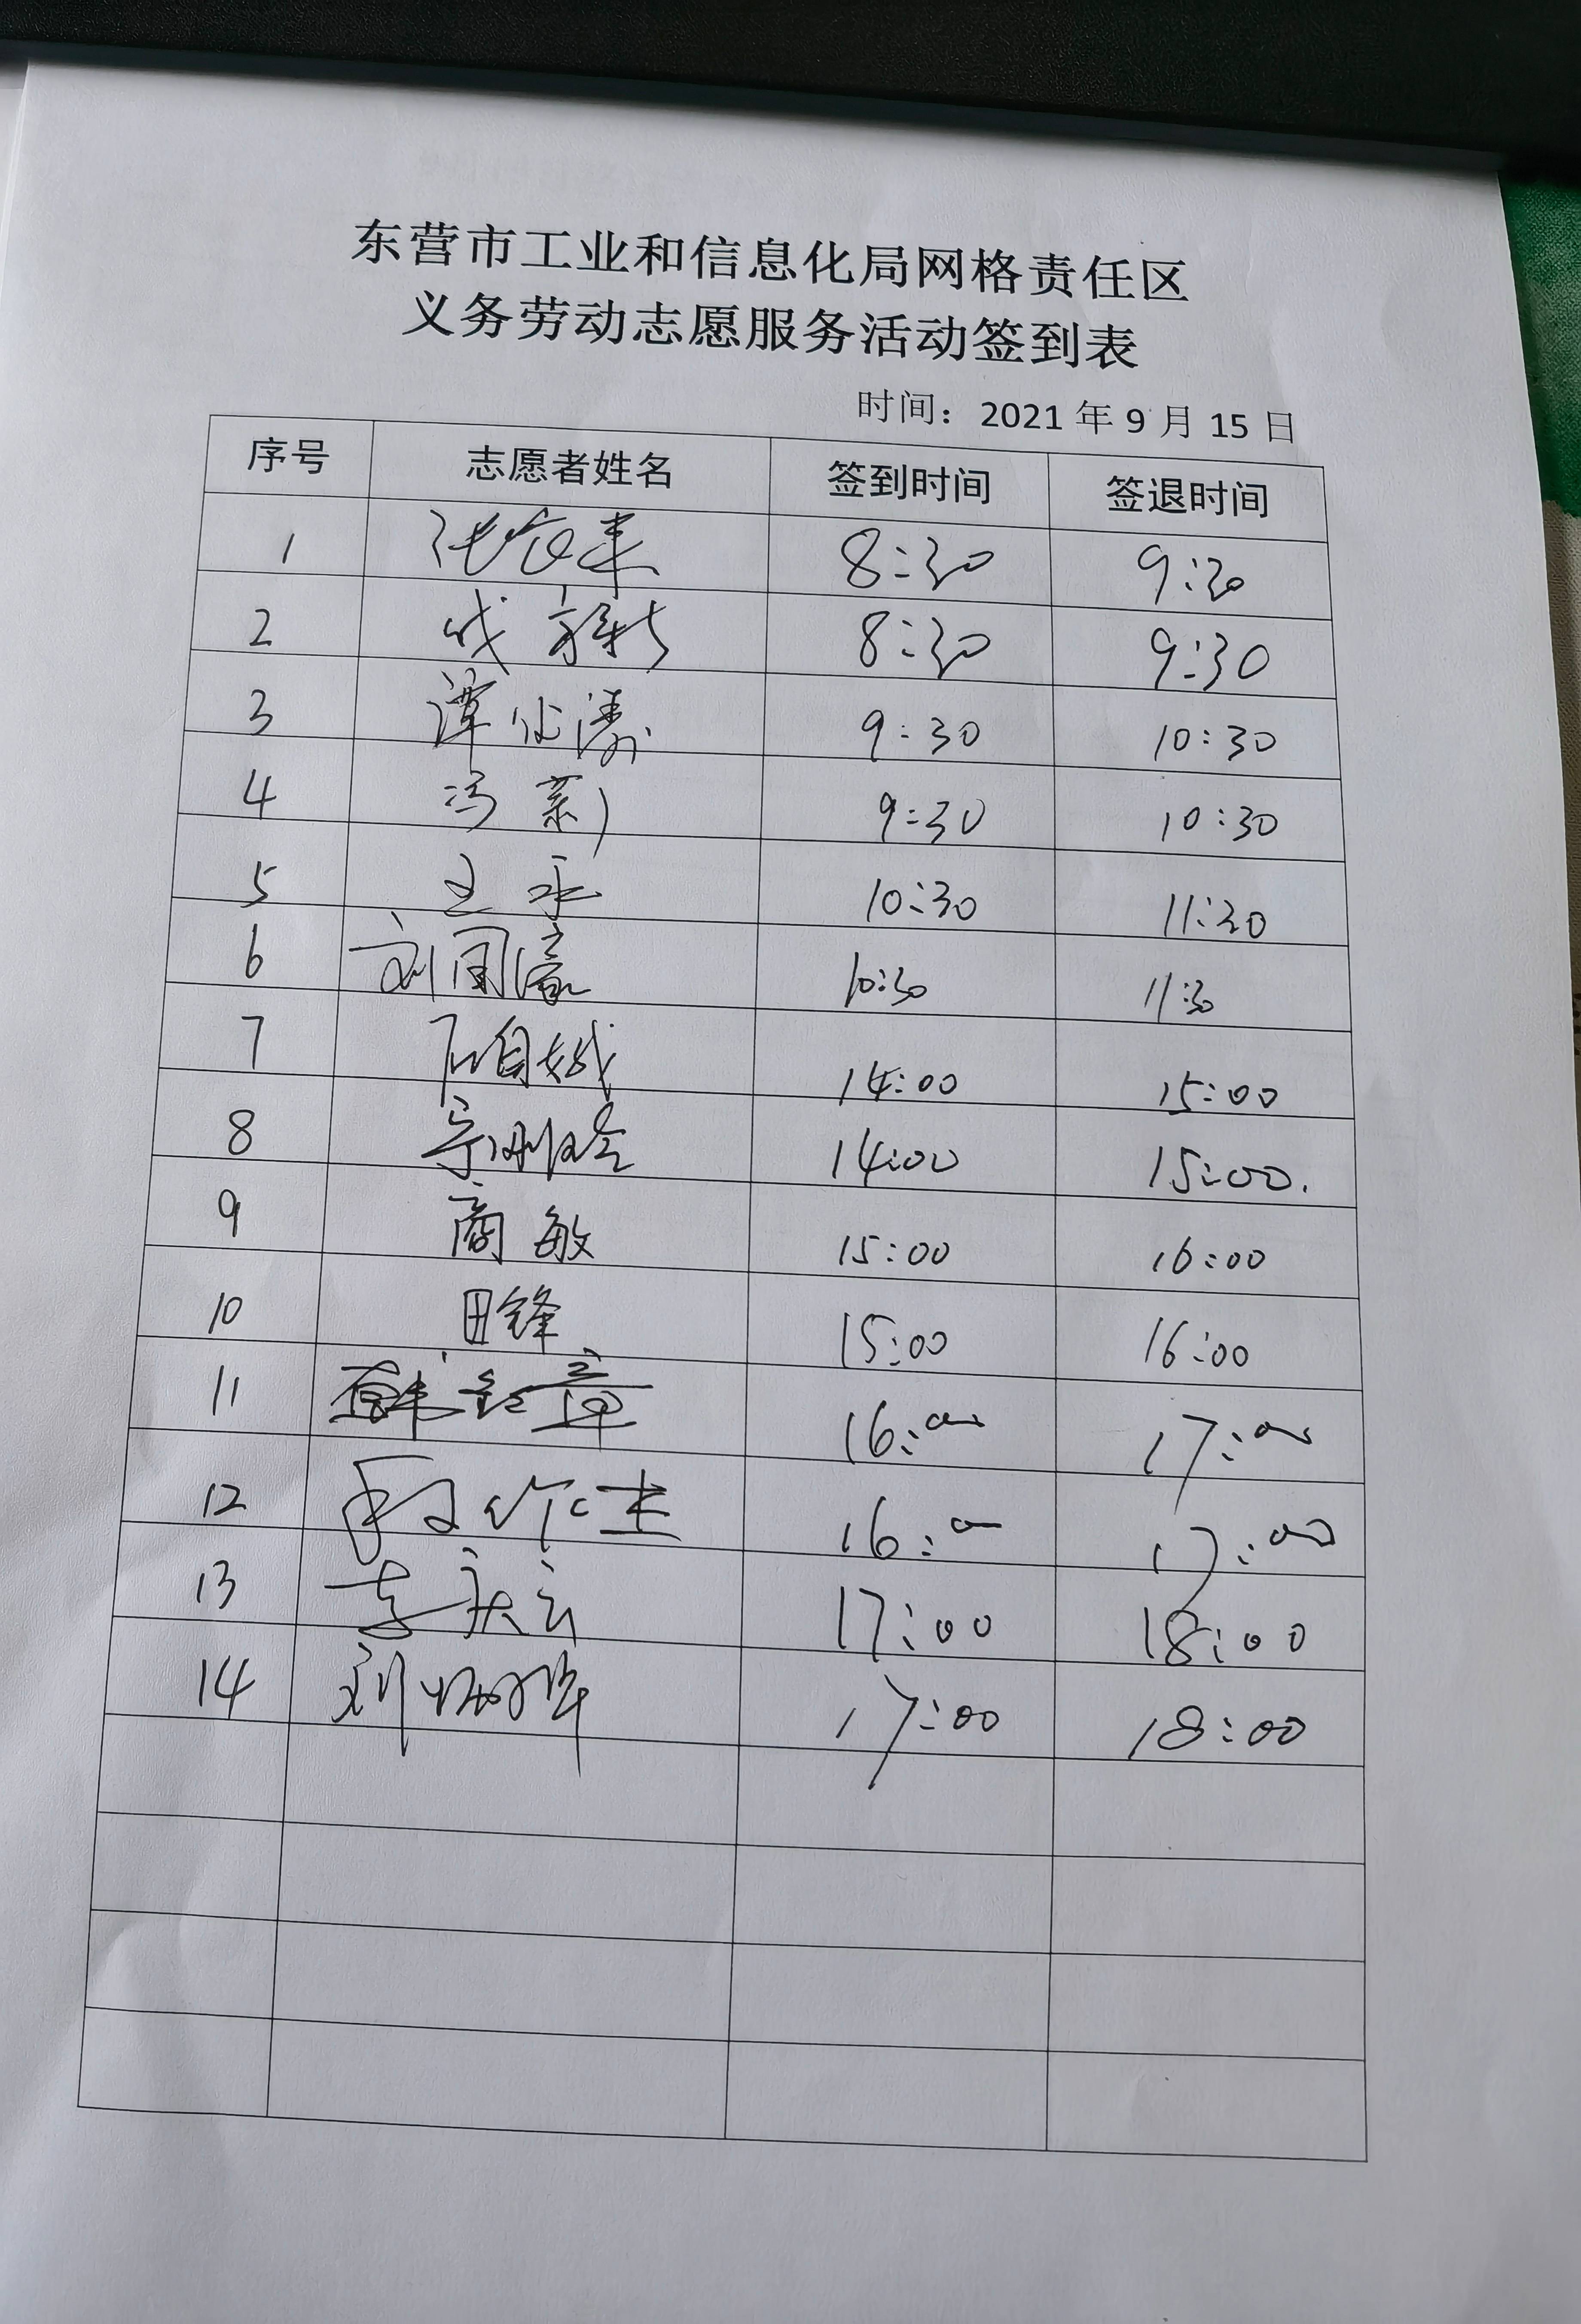 东营市工业和信息化局网格责任区
义务劳动志愿服务活动签到表
时间：2021年9月15日
序号 志愿者姓名 签到时间 签退时间
1 8:30 9:30
2 8:30 9:30
3 9:30 10:30
4 冯 9:30 10:30
5 10:30 11:30
6 刘 10:30 11:30
7 14:00 15:00
8 14:00 15:00.
9 商敏 15:00 16:00
10 田锋 15:00 16:00
11 16:00 17:00
12 16:00 17:00
13 李庆云 17:00 18:00
14 刘 17:00 18:00